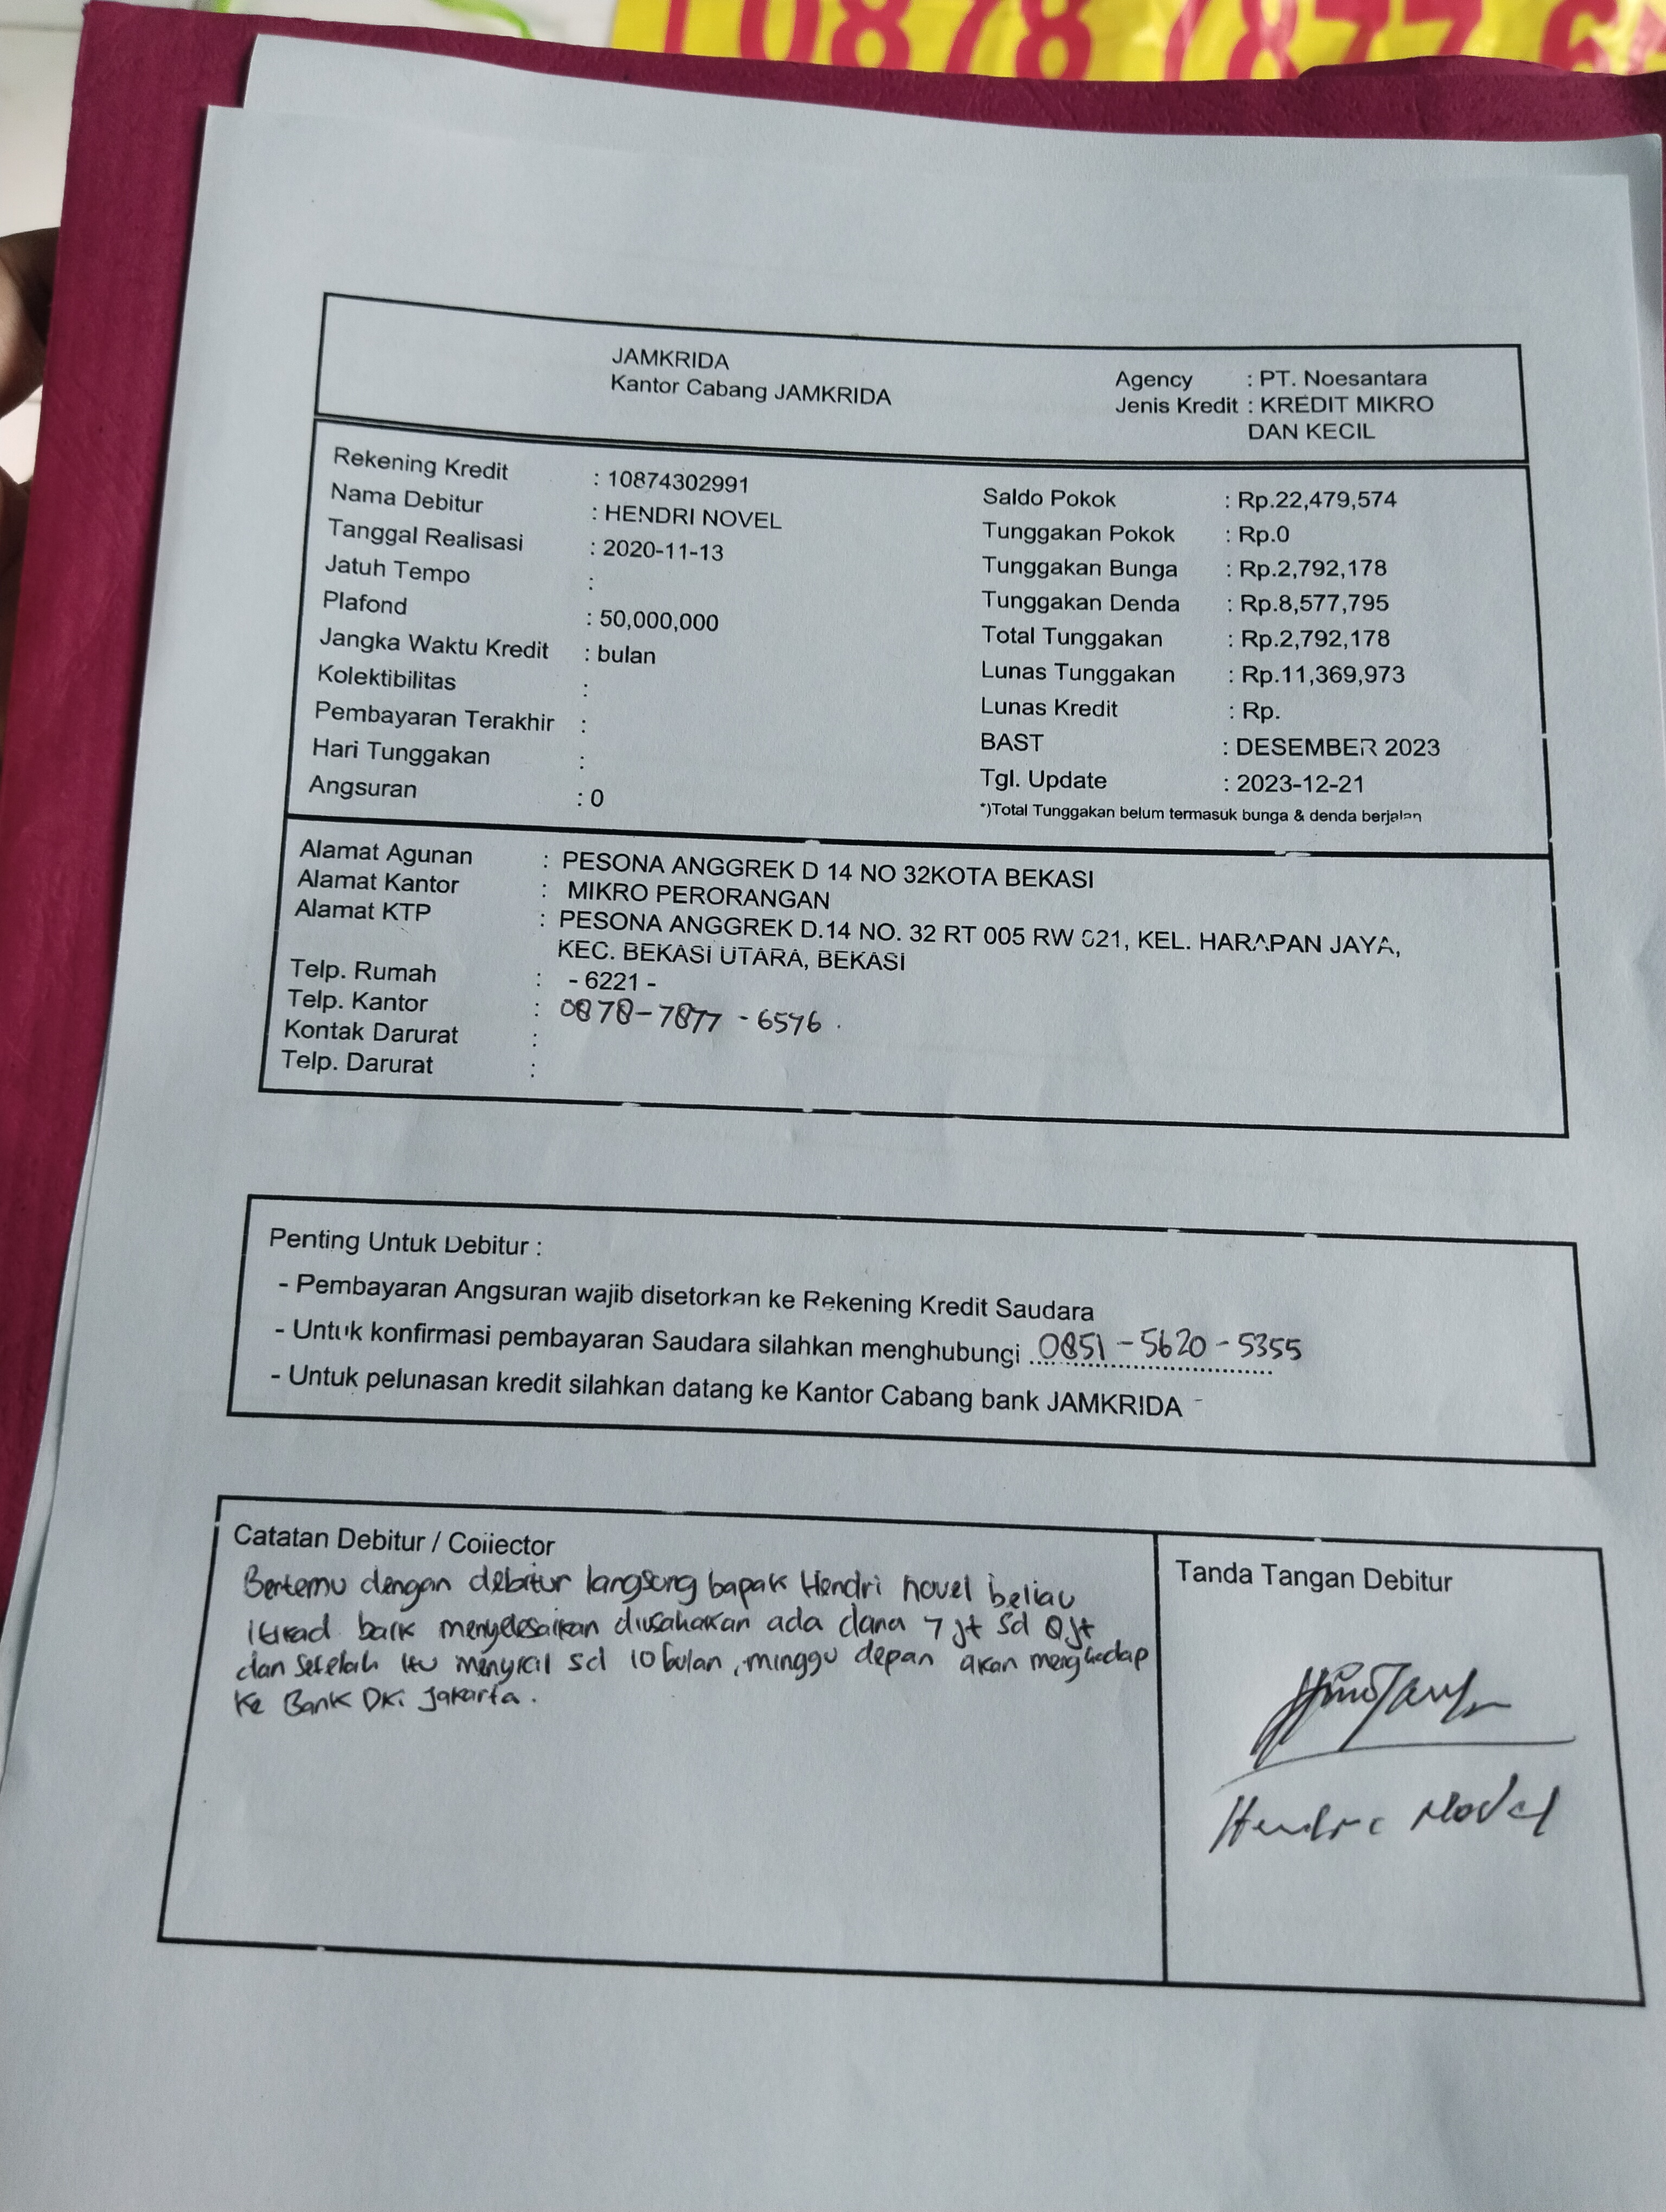 0878 7877 65
JAMKRIDA
Kantor Cabang JAMKRIDA
Agency : PT. Noesantara
Jenis Kredit : KREDIT MIKRO
DAN KECIL
Rekening Kredit : 10874302991
Nama Debitur : HENDRI NOVEL
Tanggal Realisasi : 2020-11-13
Jatuh Tempo :
Plafond : 50,000,000
Jangka Waktu Kredit : bulan
Kolektibilitas :
Pembayaran Terakhir :
Hari Tunggakan :
Angsuran : 0
Saldo Pokok : Rp.22,479,574
Tunggakan Pokok : Rp.0
Tunggakan Bunga : Rp.2,792,178
Tunggakan Denda : Rp.8,577,795
Total Tunggakan : Rp.2,792,178
Lunas Tunggakan : Rp.11,369,973
Lunas Kredit : Rp.
BAST : DESEMBER 2023
Tgl. Update : 2023-12-21
*)Total Tunggakan belum termasuk bunga & denda berjalan
Alamat Agunan : PESONA ANGGREK D 14 NO 32KOTA BEKASI
Alamat Kantor : MIKRO PERORANGAN
Alamat KTP : PESONA ANGGREK D.14 NO. 32 RT 005 RW 021, KEL. HARAPAN JAYA,
KEC. BEKASI UTARA, BEKASI
Telp. Rumah : - 6221 -
Telp. Kantor : 0878-7877-6576.
Kontak Darurat :
Telp. Darurat :
Penting Untuk Debitur :
- Pembayaran Angsuran wajib disetorkan ke Rekening Kredit Saudara
- Untuk konfirmasi pembayaran Saudara silahkan menghubungi 0851-5620-5355
- Untuk pelunasan kredit silahkan datang ke Kantor Cabang bank JAMKRIDA
Catatan Debitur / Collector
Bertemu dengan debitur langsung bapak Hendri novel beliau
itikad baik menyelesaikan diusahakan ada dana 7 jt sd 8 jt
dan setelah itu menyicil sd 10 bulan, minggu depan akan menghadap
ke Bank DKi Jakarta.
Tanda Tangan Debitur
Hendri Novel